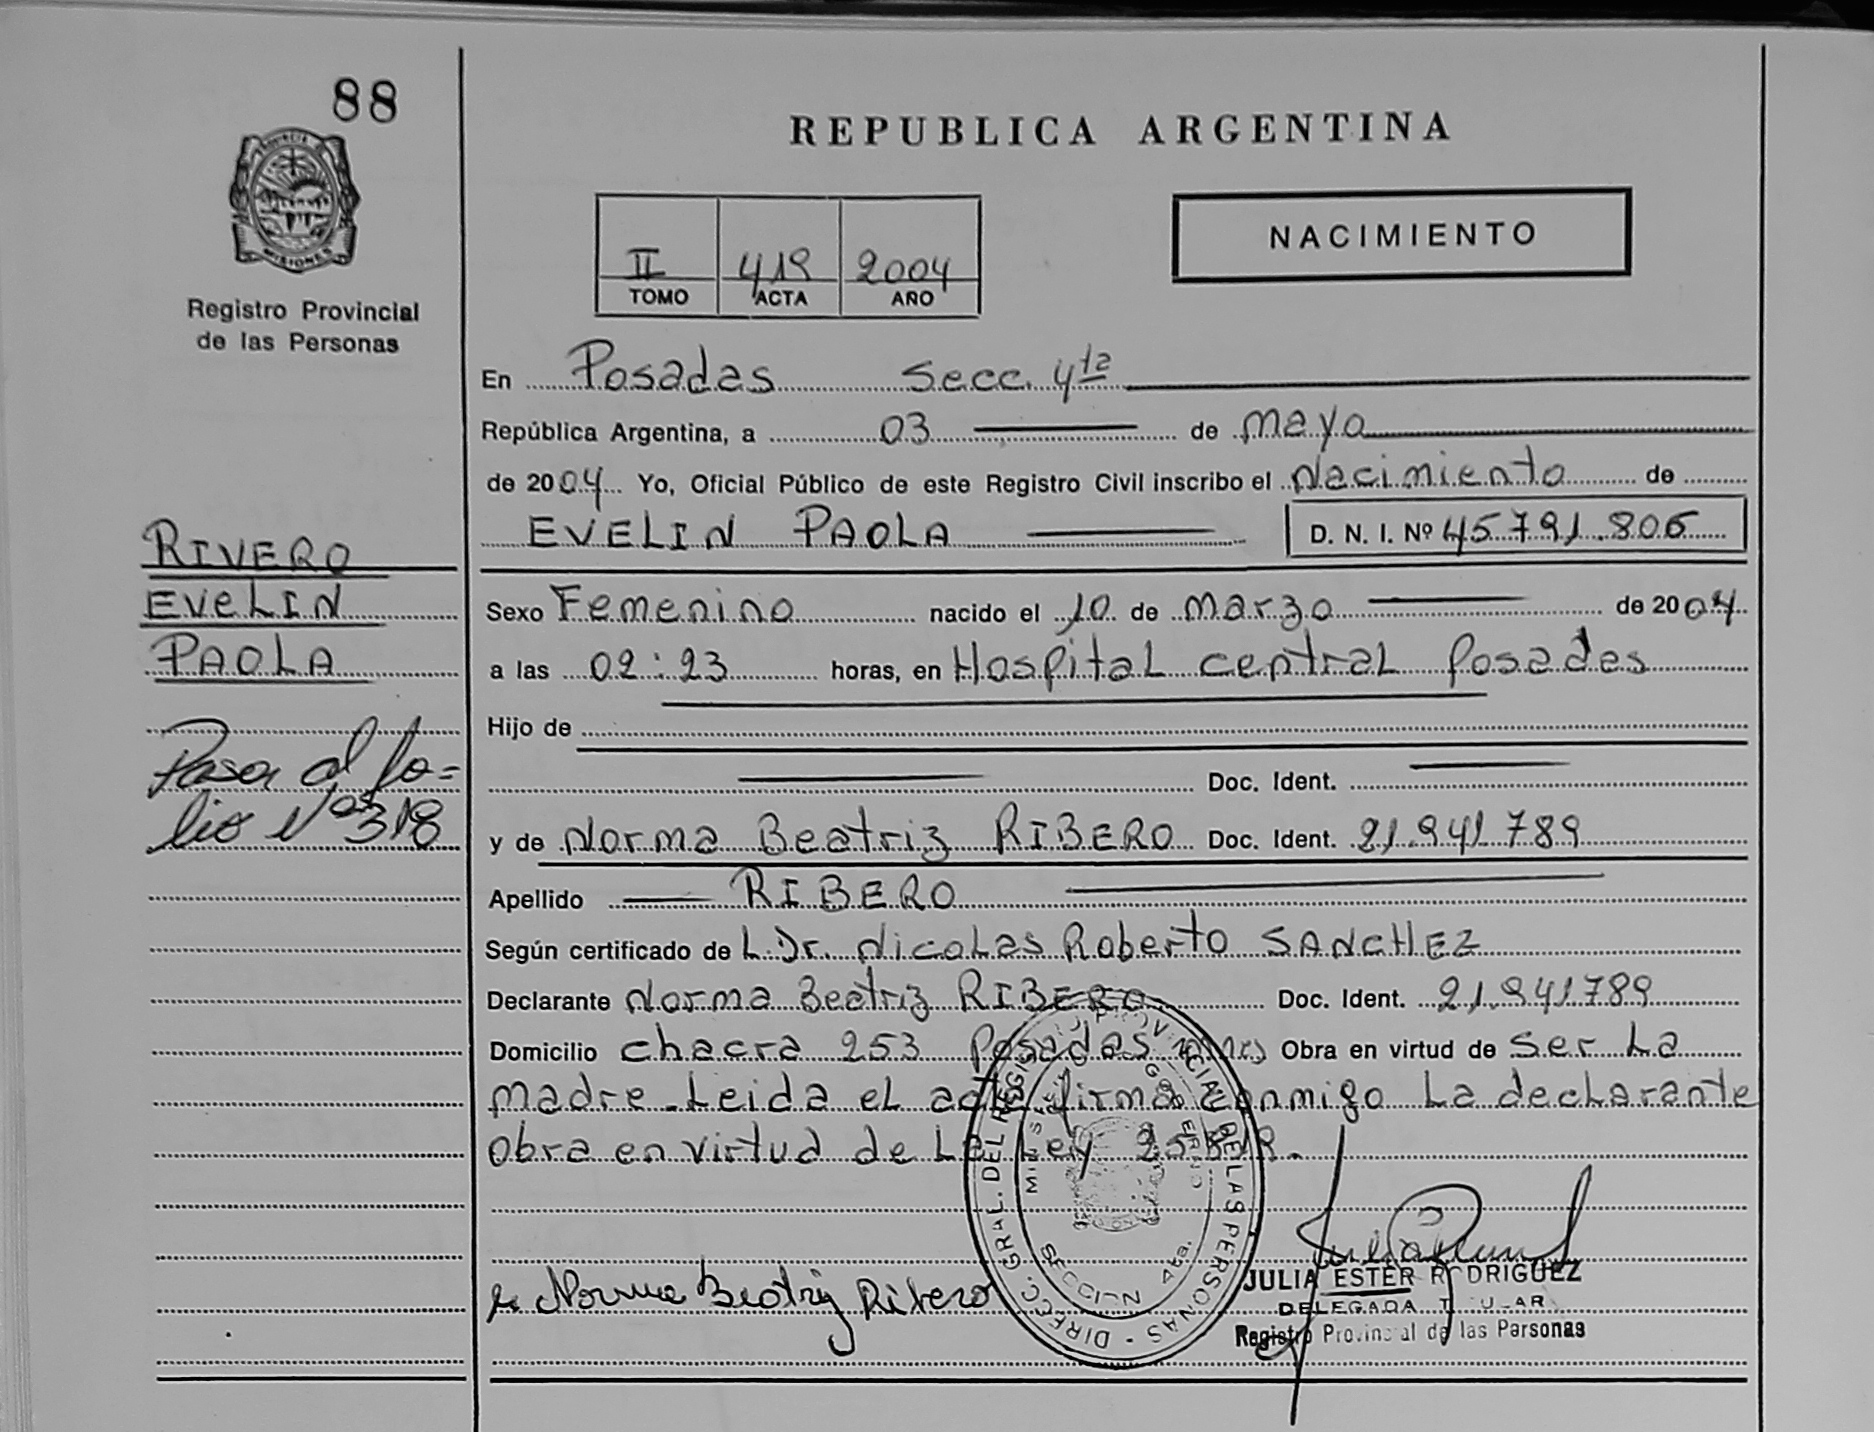 88
MISIONES
Registro Provincial
de las Personas
REPUBLICA ARGENTINA
II 419 2004
TOMO ACTA AÑO
NACIMIENTO
En Posadas Secc. 4ta
República Argentina, a 03 de mayo
de 2004 Yo, Oficial Público de este Registro Civil inscribo el Nacimiento de
EVELIN PAOLA D. N. I. Nº 45.791.806
RIVERO
EVELIN
PAOLA
Sexo Femenino nacido el 10 de marzo de 2004
a las 02:23 horas, en Hospital central Posadas
Hijo de
Doc. Ident.
Pasa al fo=
lio Nº 318
y de Norma Beatriz RIBERO Doc. Ident. 21.941.789
Apellido RIBERO
Según certificado de L.Dr. Nicolas Roberto SANCHEZ
Declarante Norma Beatriz RIBERO Doc. Ident. 21.941789
Domicilio chacra 253 Posadas Obra en virtud de ser La
madre. Leida el acta firma conmigo La declarante
Obra en virtud de La Ley
DIRECC. GRAL. DEL REGISTRO PROVINCIAL DE LAS PERSONAS
SECCION 4ta.
Norma Beatriz Ribero
JULIA ESTER RODRIGUEZ
DELEGADA TITULAR
Registro Provincial de las Personas